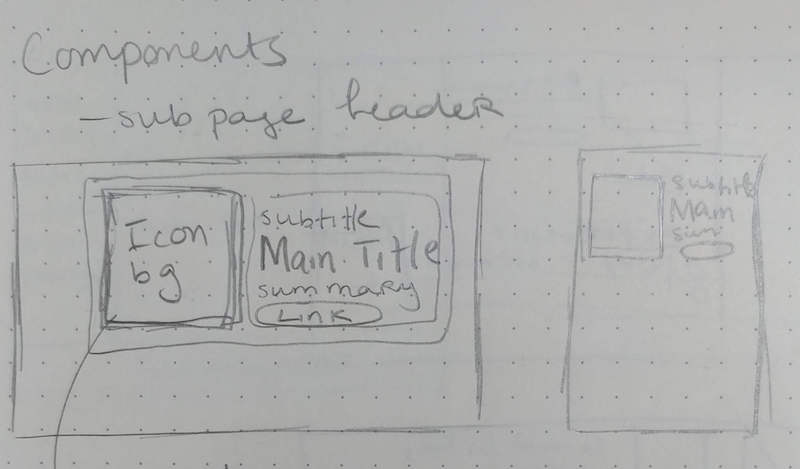 Components
- sub page header
Icon
bg
subtitle
Main Title
summary
Link
subtitle
Main
sum